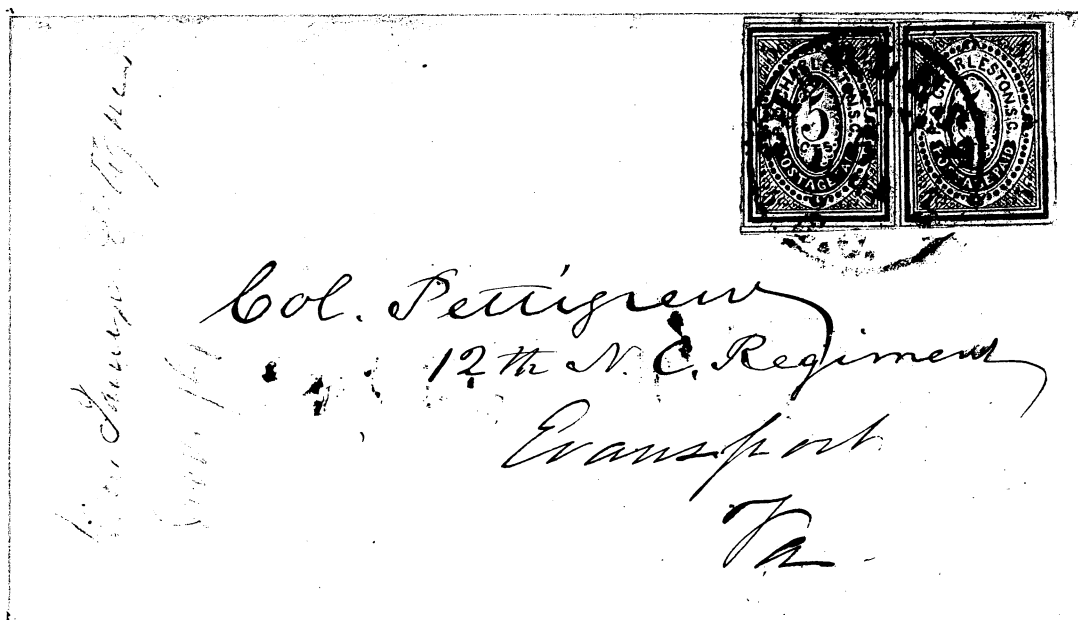 CHARLESTON, S.C.
5
CTS.
POSTAGE PAID
CHARLESTON, S.C.
POSTAGE PAID
Col. Pettigrew
12th N. C. Regiment
Evansport
Va.